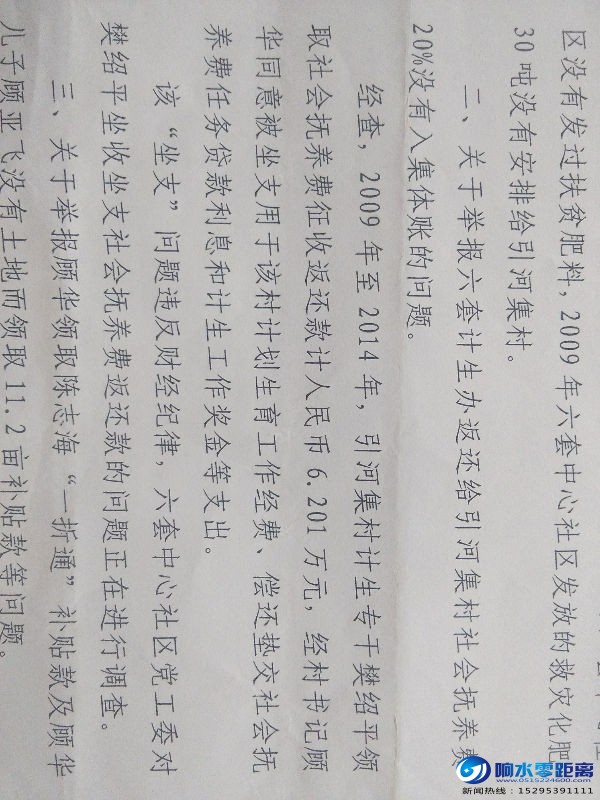 区没有发过扶贫肥料，2009 年六套中心社区发放的救灾化肥
30 吨没有安排给引河集村。
二、关于举报六套计生办返还给引河集村社会抚养费
20%没有入集体账的问题。
经查，2009 年至 2014 年，引河集村计生专干樊绍平领
取社会抚养费征收返还款计人民币 6.201 万元，经村书记顾
华同意被坐支用于该村计划生育工作经费、偿还垫交社会抚
养费任务贷款利息和计生工作奖金等支出。
该“坐支”问题违反财经纪律，六套中心社区党工委对
樊绍平坐收坐支社会抚养费返还款的问题正在进行调查。
三、关于举报顾华领取陈志海“一折通”补贴款及顾华
儿子顾亚飞没有土地而领取 11.2 亩补贴款等问题。
响水零距离
www.0515224600.com
新闻热线：15295391111